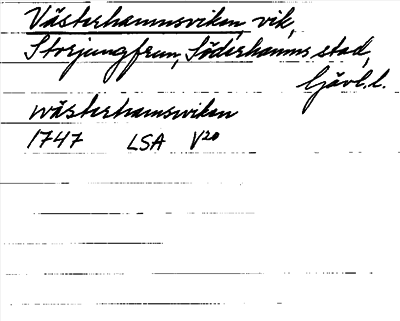 Västerhamnsviken, vik,
Storjungfrun, Söderhamns stad,
Gävl.l.
wästerhamswiken
1747 LSA V20